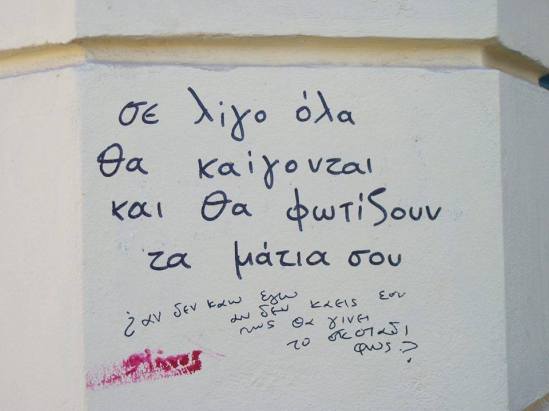 σε λίγο όλα
θα καίγονται
και θα φωτίζουν
τα μάτια σου
¿αν δεν καω εγω
αν δεν καεις εσυ
πως θα γινει
το σκοταδι
φως?